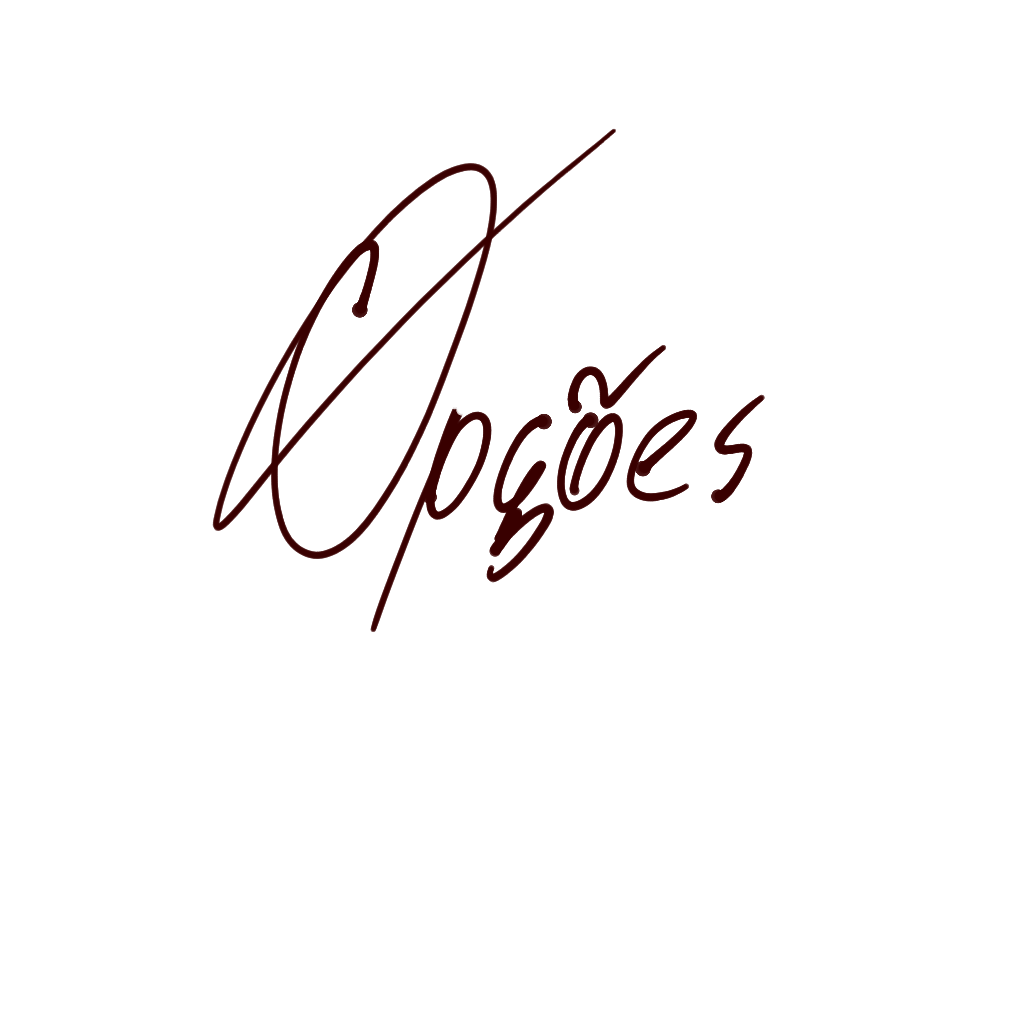 Opções